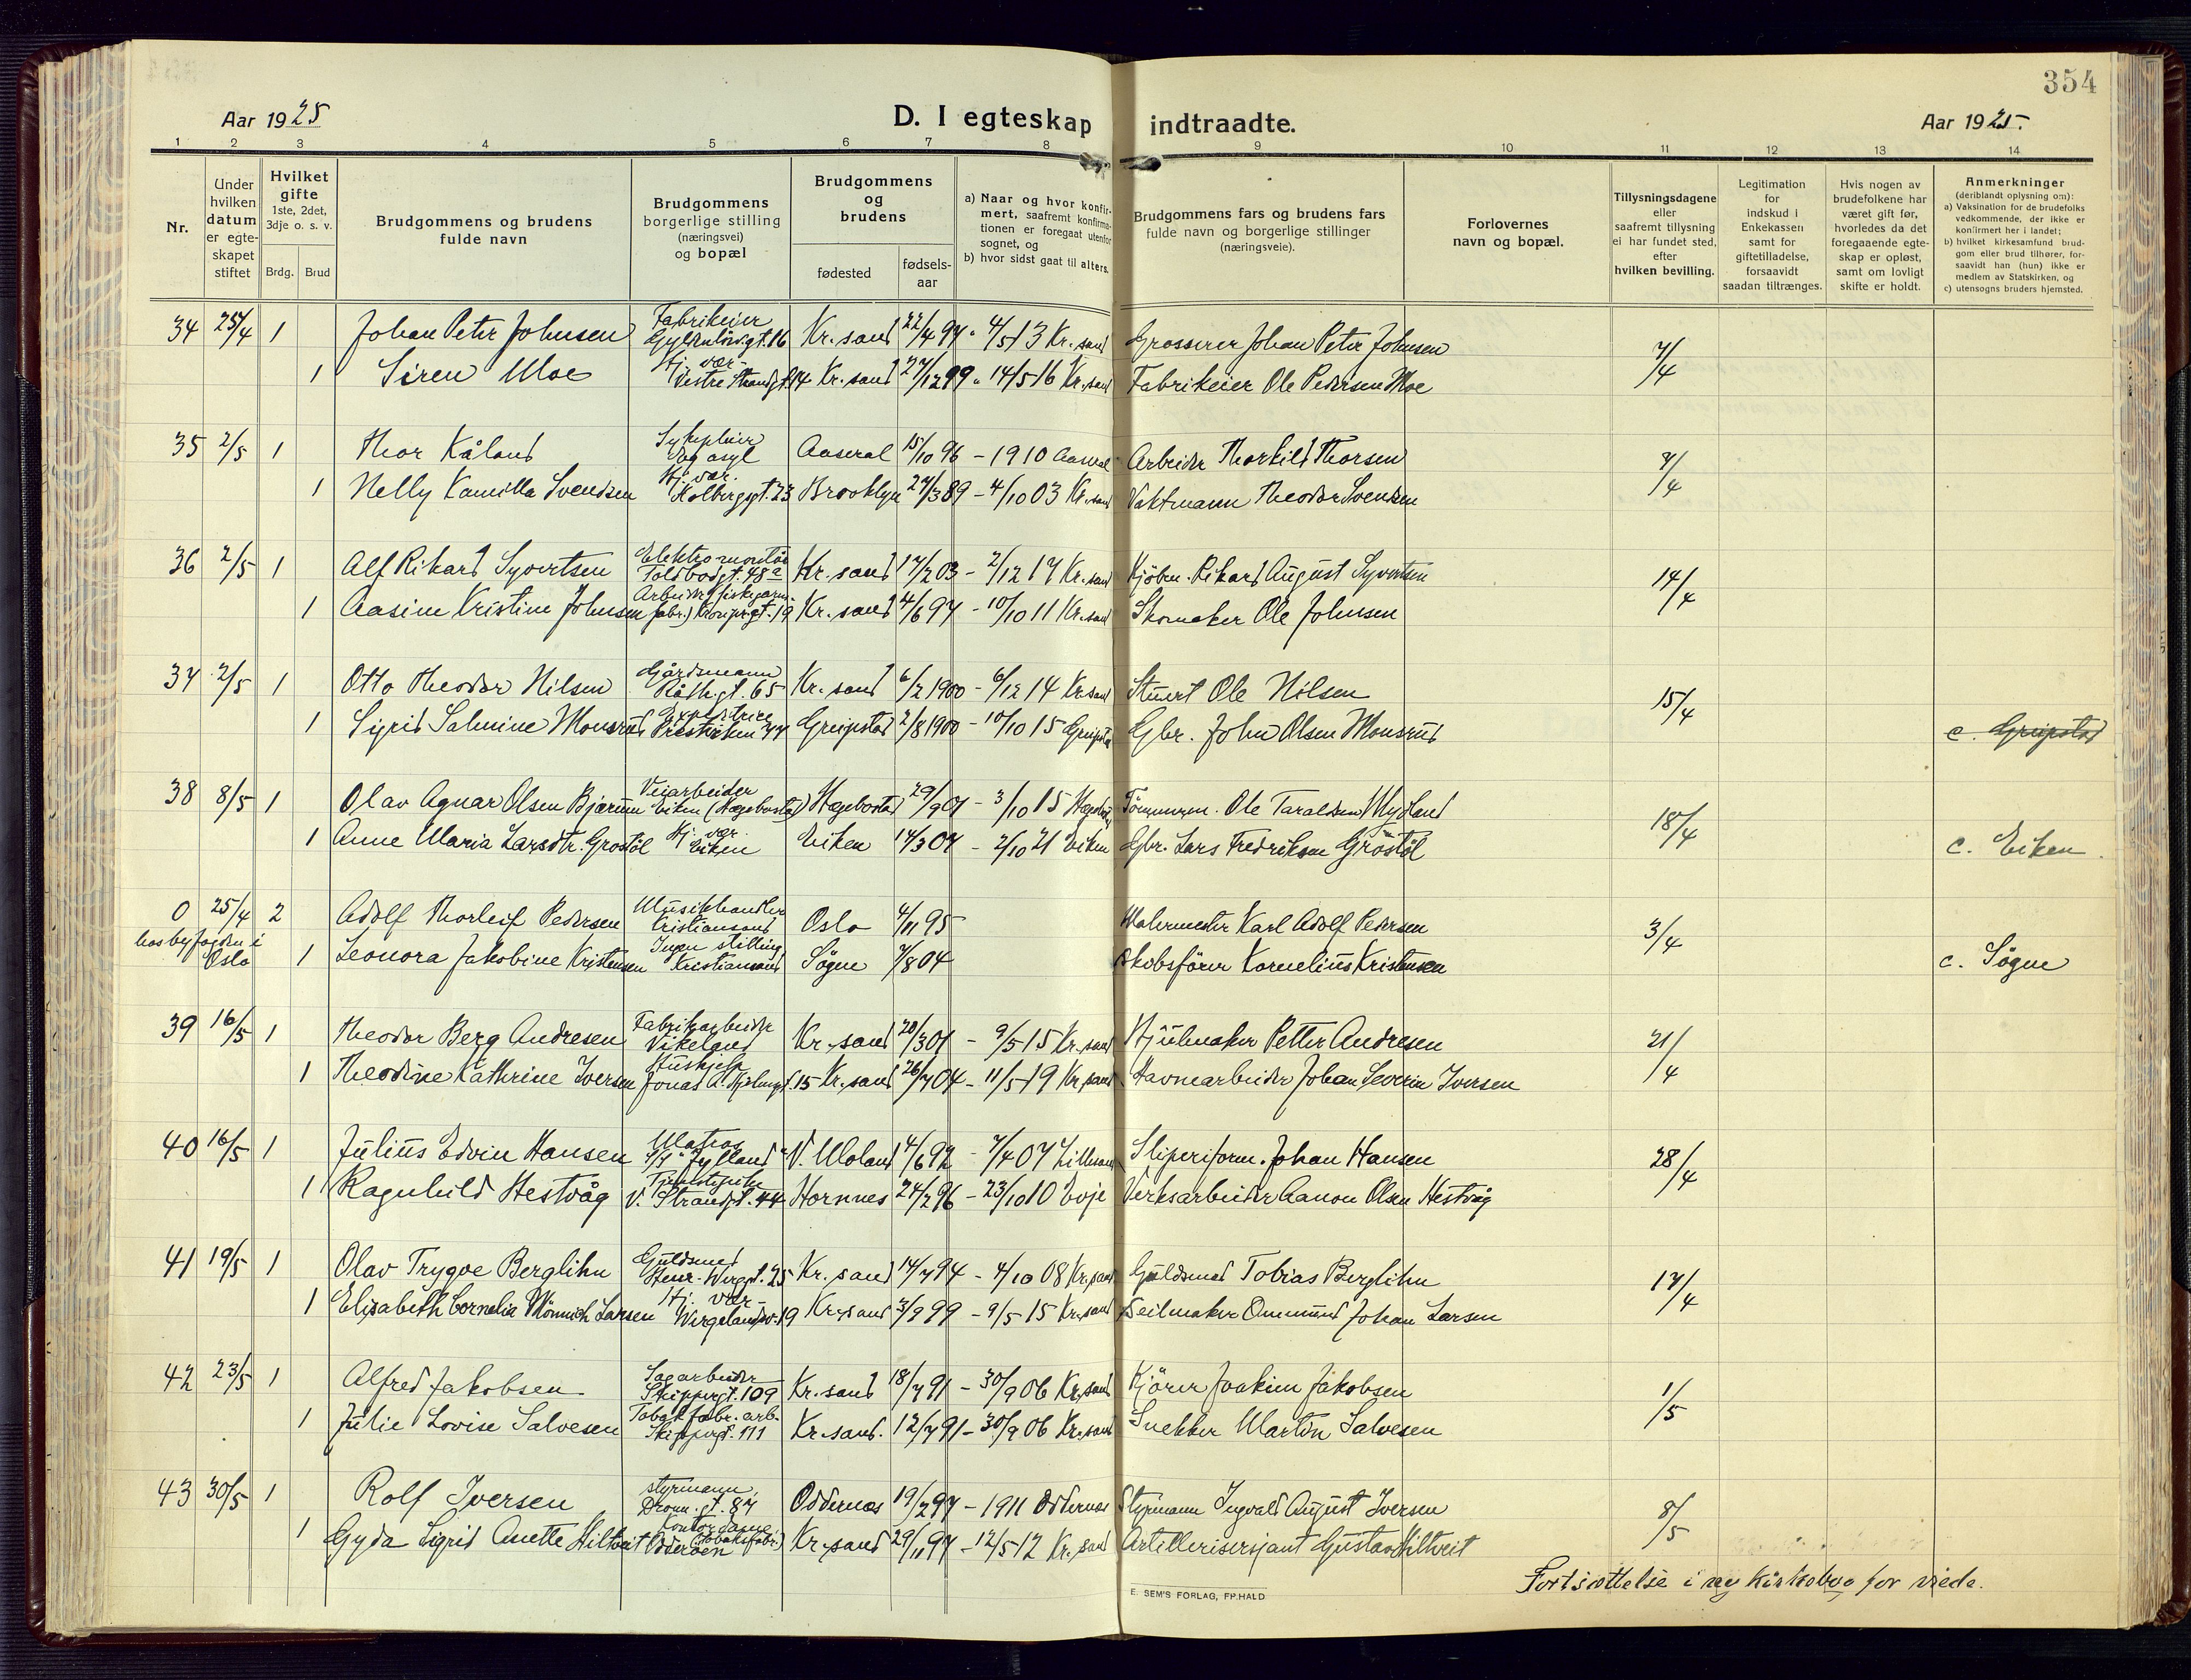 354
Aar 1925
D. I egteskap indtraadte.
Aar 1925.
1 2 3 4 5 6 7 8 9 10 11 12 13 14
Nr.
Under hvilken datum er egte-skapet stiftet
Hvilket gifte 1ste, 2det, 3dje o. s. v.
Brdg. Brud
Brudgommens og brudens fulde navn
Brudgommens borgerlige stilling (næringsvei) og bopæl
Brudgommens og brudens
fødested
fødsels-aar
a) Naar og hvor konfir-mert, saafremt konfirma-tionen er foregaat utenfor sognet, og
b) hvor sidst gaat til alters.
Brudgommens fars og brudens fars fulde navn og borgerlige stillinger (næringsveie).
Forlovernes navn og bopæl.
Tillysningsdagene eller saafremt tillysning ei har fundet sted, efter hvilken bevilling.
Legitimation for indskud i Enkekassen samt for giftetilladelse, forsaavidt saadan tiltrænges.
Hvis nogen av brudefolkene har været gift før, hvorledes da det foregaaende egte-skap er opløst, samt om lovligt skifte er holdt.
Anmerkninger (deriblandt oplysning om):
a) Vaksination for de brudefolks vedkommende, der ikke er konfirmert her i landet;
b) hvilket kirkesamfund brud-gom eller brud tilhører, for-saavidt han (hun) ikke er medlem av Statskirken, og
c) utensogns bruders hjemsted.
34 25/4 1 Johan Peter Johnsen Fabrikeier Gyldenløvsgt. 16 Kr. sand 22/4 97 " 4/5 13 Kr. sand Grosserer Johan Peter Johnsen 7/4
1 Siren Moe Hj. vær. Vestre Strandgt. 14 Kr. sand 27/12 99 " 14/5 16 Kr. sand Fabrikeier Ole Pedersen Moe
35 2/5 1 Thor Kåland Sykepleier Aaseral 15/10 96 - 1910 Aaseral Arbeider Thorkild Thorsen 7/4
1 Nelly Kamilla Svendsen Hj. vær. Holbergsgt. 23 Brooklyn 27/3 89 - 4/10 03 Kr. sand Vaktmann Theodor Svendsen
36 2/5 1 Alf Rikard Syvertsen Elektromontør Toldbodgt. 48a Kr. sand 17/2 03 - 2/12 17 Kr. sand Kjøbm. Rikard August Syvertsen 14/4
1 Aasine Kristine Johnsen Arbeider (fiskegarn-fabr.) Kronprgt. 19 Kr. sand 4/6 97 - 10/10 11 Kr. sand Skomaker Ole Johnsen
37 2/5 1 Otto Theodor Nilsen Gårdsmann Rådh.gt. 65 Kr. sand 6/2 1900 - 6/12 14 Kr. sand Stuert Ole Nilsen 15/4
1 Sigrid Salmine Monsrud Expeditrice Greipstad 2/8 1900 - 10/10 15 Greipstad Gbr. John Olsen Monsrud c. Greipstad
38 8/5 1 Olav Agnar Olsen Bjærum Veiarbeider Eiken (Hægebostad) Hægebostad 29/9 01 - 3/10 15 Hægebostad Tømmerm. Ole Taraldsen Mydland 18/4
1 Anne Maria Larsdtr. Grostøl Hj. vær. Eiken Eiken 14/3 04 - 2/10 21 Eiken Gbr. Lars Fredriksen Grøstøl c. Eiken
0 25/4 2 Adolf Thorleif Pedersen Musikhandler Kristiansand Oslo 4/11 95 Malermester Karl Adolf Pedersen 3/4
hos byfogden i Oslo 1 Leonora Jakobine Kristensen Ingen stilling Kristiansand Søgne 7/8 04 Skibsfører Kornelius Kristensen c. Søgne
39 16/5 1 Theodor Berg Andresen Fabrikarbeider Vikeland Kr. sand 20/3 01 - 9/5 15 Kr. sand Hjulmaker Petter Andresen 21/4
1 Theodine Kathrine Iversen Huskjelp Kr. sand 26/7 04 - 11/5 19 Kr. sand Havnearbeider Johan Severin Iversen
40 16/5 1 Julius Edvin Hansen Matros S/S "Jylland" V. Moland 4/6 92 - 7/4 07 Lillesand Sliperiform. Johan Hansen 28/4
1 Ragnhild Hestvåg Tjenestepike V. Strandgt. 44 Hornnes 24/2 96 - 23/10 10 Evje Verksarbeider Aanon Olsen Hestvåg
41 19/5 1 Olav Trygve Berglihn Guldsmed Henr. Wergt. 25 Kr. sand 14/7 94 - 4/10 08 Kr. sand Guldsmed Tobias Berglihn 17/4
1 Elisabeth Cornelia Mönnich Larsen Hj. vær. Wergelandsv. 19 Kr. sand 3/9 99 - 9/5 15 Kr. sand Seilmaker Ommund Johan Larsen
42 23/5 1 Alfred Jakobsen Sagarbeider Skippergt. 109 Kr. sand 18/7 91 - 30/9 06 Kr. sand Kjører Joakim Jakobsen 1/5
1 Julie Lovise Salvesen Tobakfabr. arb. Skippergt. 111 Kr. sand. 12/7 91 - 30/9 06 Kr. sand Snekker Martin Salvesen
43 30/5 1 Rolf Iversen styrmann, Dronn. gt. 87 Oddernes 19/2 97 - 1911 Oddernes Styrmann Ingvald August Iversen 8/5
1 Gyda Sigrid Anette Hiltveit Kontordame (tobaksfabr.) Odderøen Kr. sand 29/11 97 - 12/5 12 Kr. sand Artillerisersjant Gustav Hiltveit
Fortsættelse i ny kirkebog for viede.
E. SEM'S FORLAG, FR.HALD